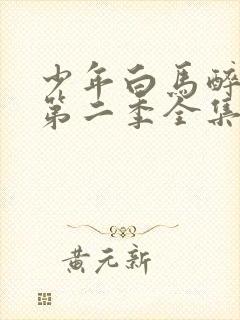 少年白馬醉
第二季全集
黄元新